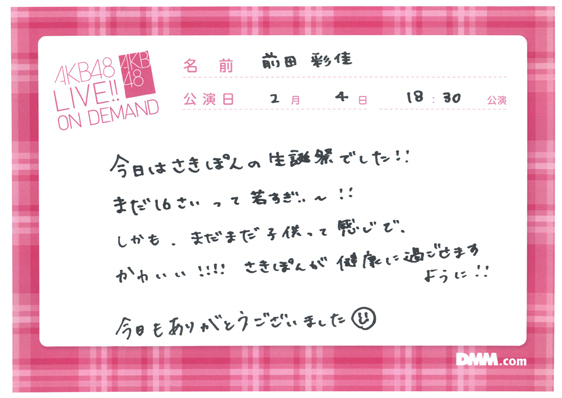 AKB48
LIVE!!
ON DEMAND
AKB
48
名前 前田 彩佳
公演日 2月 4日 18:30 公演
今日はさきぽんの生誕祭でした!!
まだ16さいって若すぎ..〜!!
しかも、まだまだ子供って感じで、
かわいい!!!! さきぽんが健康に過ごせます
ように!!
今日もありがとうございました
DMM.com